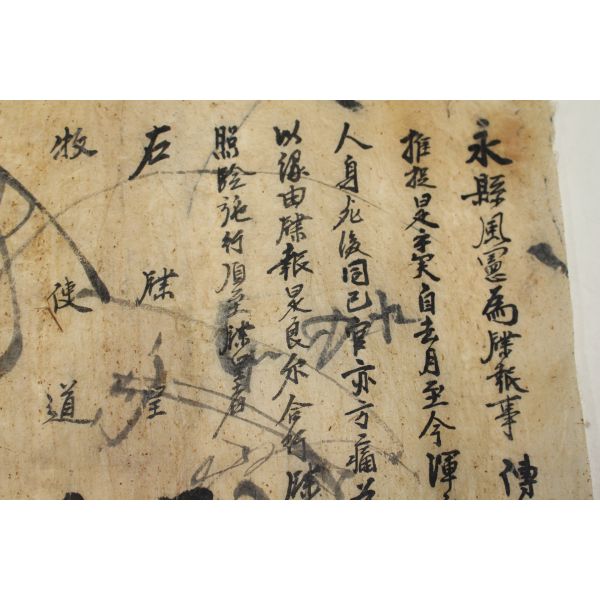 永縣風憲爲牒報事 傳
推捉是乎矣自去月至今渾
人身死後同己官亦方痛
以緣由牒報是良尔合行牒
照驗施行須至牒呈者
右牒呈
牧使道